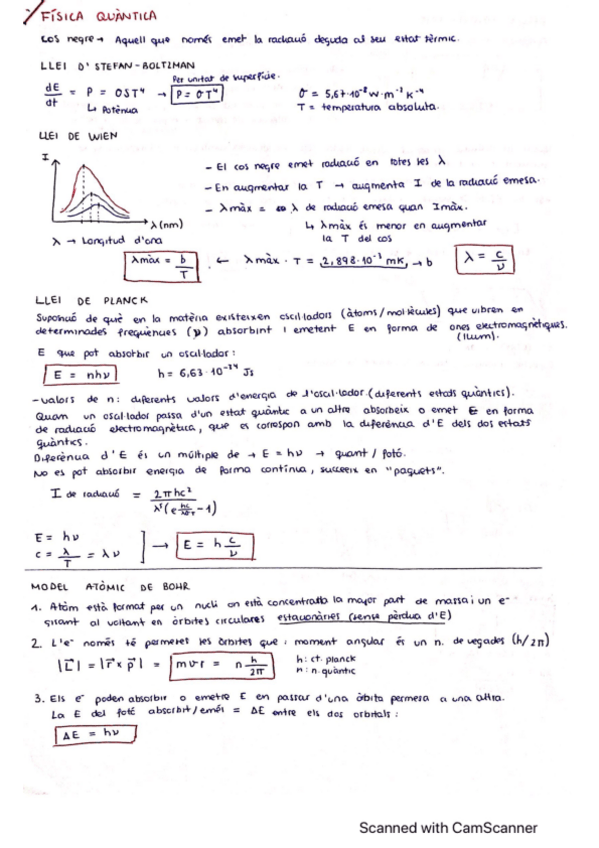 FÍSICA QUÀNTICA
cos negre → Aquell que només emet la radiació deguda al seu estat tèrmic.
LLEI D'STEFAN-BOLTZMAN
dE/dt = P = σST⁴ → P = σT⁴
Per unitat de superfície.
↳ Potència
σ = 5,67·10⁻⁸ W·m⁻²·K⁻⁴
T = temperatura absoluta.
LLEI DE WIEN
I
λ (nm)
λ → Longitud d'ona
- El cos negre emet radiació en totes les λ
- En augmentar la T → augmenta I de la radiació emesa.
- λmàx = λ de radiació emesa quan Imàx.
↳ λmàx és menor en augmentar
la T del cos
λmàx = b/T ← λmàx · T = 2,898·10⁻³ mK → b
λ = c/ν
LLEI DE PLANCK
Suposició de què en la matèria existeixen oscil·ladors (àtoms/mol·lècules) que vibren en
determinades freqüències (ν) absorbint i emetent E en forma de ones electromagnètiques.
(llum).
E que pot absorbir un oscil·lador:
E = nhν
h = 6,63·10⁻³⁴ Js
- valors de n: diferents valors d'energia de l'oscil·lador (diferents estats quàntics).
Quan un oscil·lador passa d'un estat quàntic a un altre absorbeix o emet E en forma
de radiació electromagnètica, que es correspon amb la diferència d'E dels dos estats
quàntics.
Diferència d'E és un múltiple de → E = hν → quant / fotó.
No es pot absorbir energia de forma contínua, succeeix en "paquets".
I de radiació = 2πhc²/λ⁵(e^(hc/λkT) - 1)
E = hν
c = λ/T = λν
→ E = h c/ν
MODEL ATÒMIC DE BOHR
1. Àtom està format per un nucli on està concentrada la major part de massa i un e⁻
girant al voltant en òrbites circulares estacionàries (sense pèrdua d'E)
2. L'e⁻ només té permeses les òrbites que i moment angular és un n. de vegades (h/2π)
|L⃗| = |r⃗ × p⃗| = mvr = n h/2π
h: ct. planck
n: n. quàntic
3. Els e⁻ poden absorbir o emetre E en passar d'una òbita permesa a una altra.
La E del fotó absorbit/emés = ΔE entre els dos orbitals:
ΔE = hν
Scanned with CamScanner